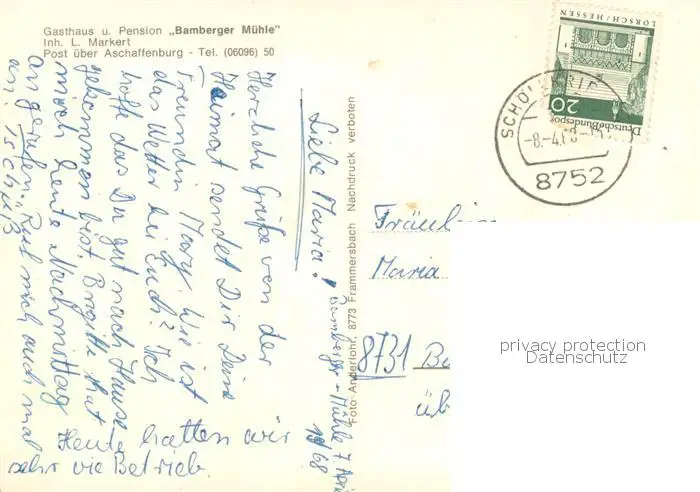 Gasthaus u. Pension „Bamberger Mühle"
Inh. L. Markert
Post über Aschaffenburg - Tel. (06096) 50
Bamberger-Mühle 7. April
1968
Liebe Maria!
Herzliche Grüße von der
Heimat sendet Dir Deine
Freundin Mary. Wie ist
das Wetter bei Euch? Ich
hoffe das Du gut nach Hause
gekommen bist. Brigitte hat
mich heute Nachmittag
angerufen. Ruf mich auch mal
an. Tschüß
Heute hatten wir
sehr vie Betrieb.
Foto Anderlohr, 8773 Frammersbach Nachdruck verboten
LORSCH/HESSEN
20
Deutsche Bundespost
-8.-4.68
8752
Fräulein
Maria
8731
üb
privacy protection
Datenschutz